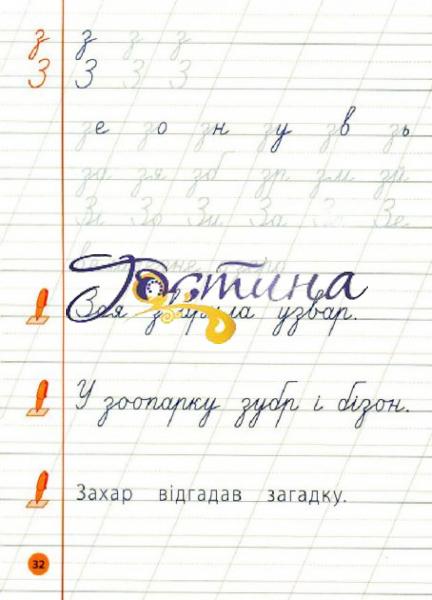 з з з з
З З З З
зе зо зн зу зв зь
за зя зб зр зм
Зі Зо Зи За Зе
Зоя зварила узвар.
У зоопарку зубр і бізон.
Захар відгадав загадку.
32